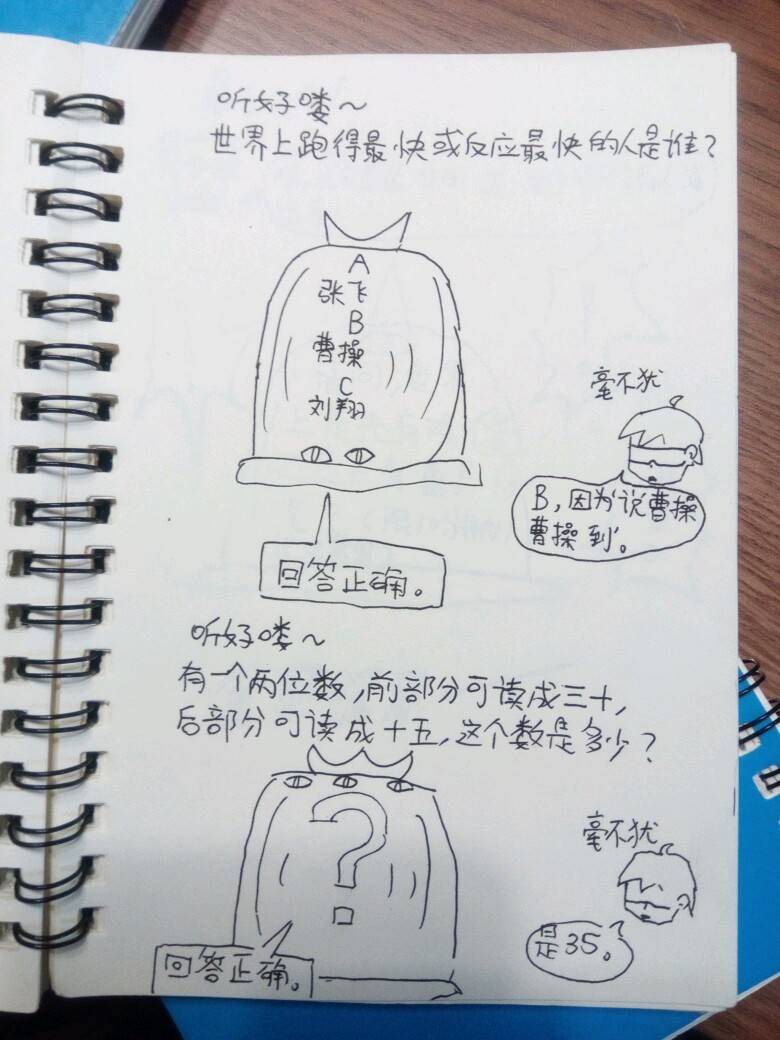 听好喽～
世界上跑得最快或反应最快的人是谁？
A
张飞
B
曹操
C
刘翔
毫不犹
B，因为‘说曹操
曹操到’。
回答正确。
听好喽～
有一个两位数，前部分可读成三十，
后部分可读成十五，这个数是多少？
?
毫不犹
是35。
回答正确。